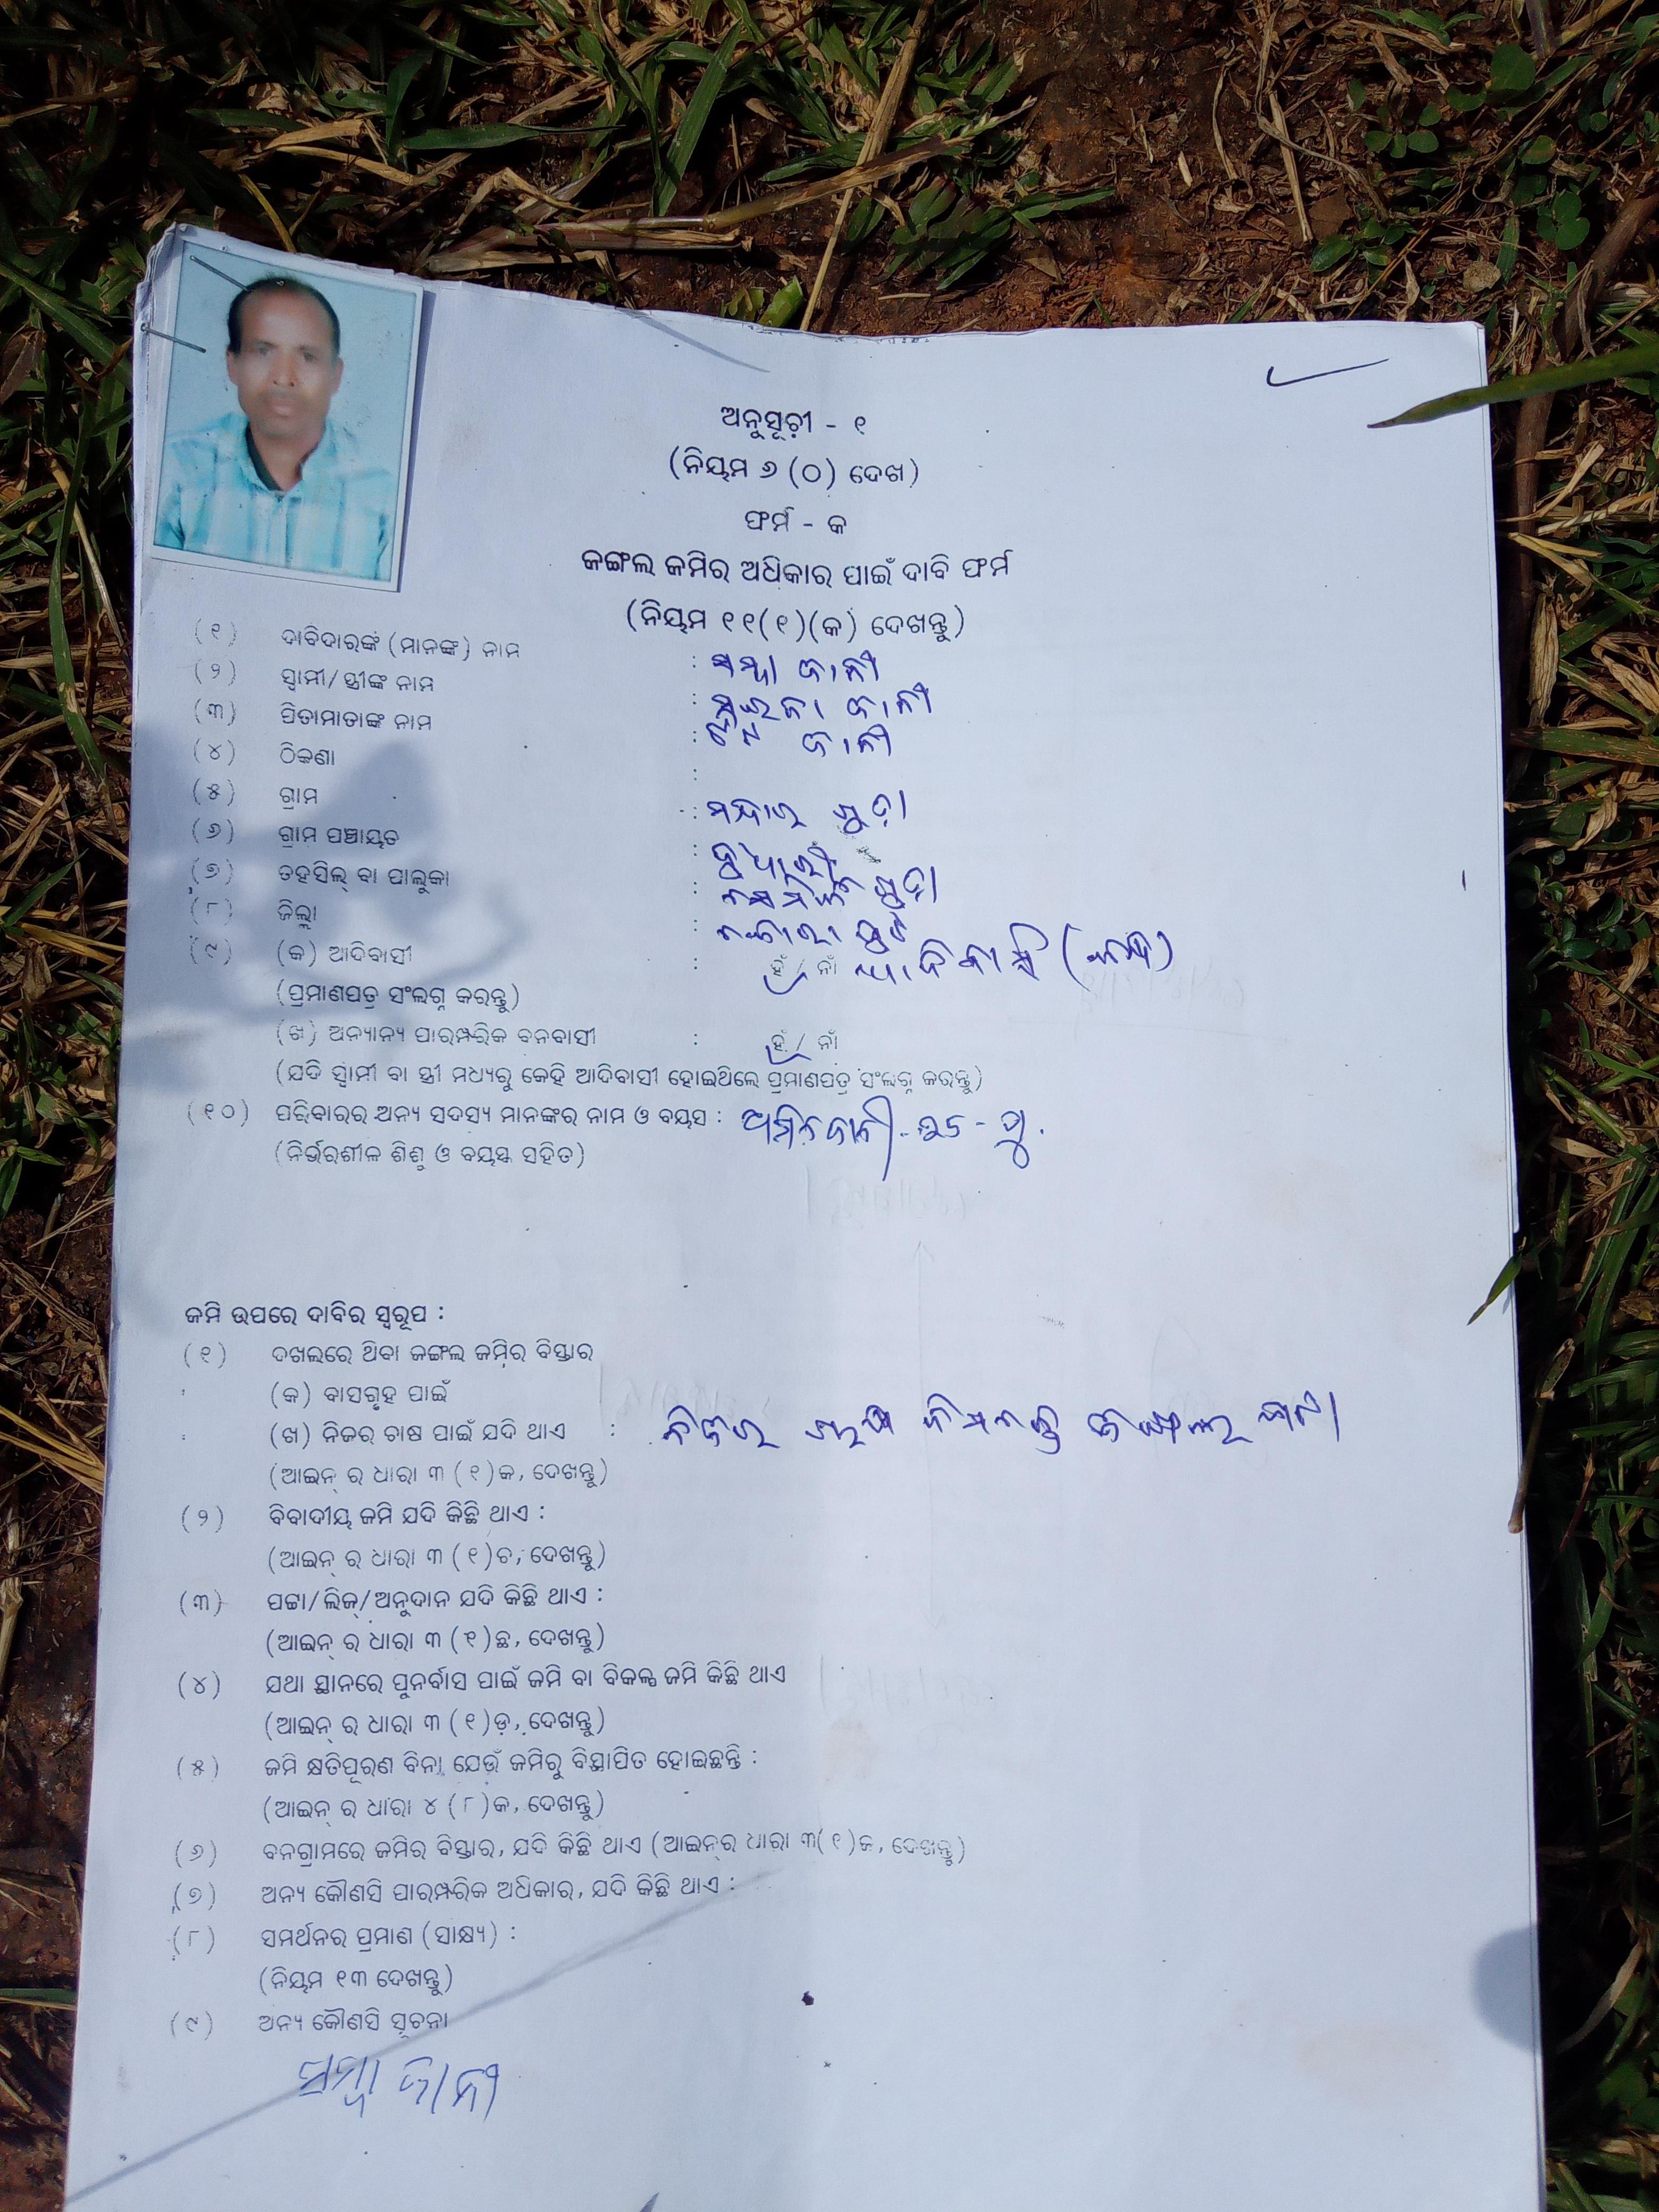 ଅନୁସୂଚୀ - ୧
(ନିୟମ ୬ (୦) ଦେଖ)
ଫର୍ମ - କ
ଜଙ୍ଗଲ ଜମିର ଅଧିକାର ପାଇଁ ଦାବି ଫର୍ମ
(ନିୟମ ୧୧(୧)(କ) ଦେଖନ୍ତୁ)
(୧) ଦାବିଦାରଙ୍କ (ମାନଙ୍କ) ନାମ : ଜାନୀ
(୨) ସ୍ୱାମୀ/ସ୍ତ୍ରୀଙ୍କ ନାମ : ଜାନୀ
(୩) ପିତାମାତାଙ୍କ ନାମ : ଜାନୀ
(୪) ଠିକଣା :
(୫) ଗ୍ରାମ : ଗୁଡ଼ା
(୬) ଗ୍ରାମ ପଞ୍ଚାୟତ :
(୭) ତହସିଲ୍ ବା ପାଲୁକା : ଗୁଡ଼ା
(୮) ଜିଲ୍ଲା :
(୯) (କ) ଆଦିବାସୀ : ହଁ / ନାଁ ଆଦିବାସି
(ପ୍ରମାଣପତ୍ର ସଂଲଗ୍ନ କରନ୍ତୁ)
(ଖ) ଅନ୍ୟାନ୍ୟ ପାରମ୍ପରିକ ବନବାସୀ : ହଁ / ନାଁ
(ଯଦି ସ୍ୱାମୀ ବା ସ୍ତ୍ରୀ ମଧ୍ୟରୁ କେହି ଆଦିବାସୀ ହୋଇଥିଲେ ପ୍ରମାଣପତ୍ର ସଂଲଗ୍ନ କରନ୍ତୁ)
(୧୦) ପରିବାରର ଅନ୍ୟ ସଦସ୍ୟ ମାନଙ୍କର ନାମ ଓ ବୟସ : ଜାନୀ
(ନିର୍ଭରଶୀଳ ଶିଶୁ ଓ ବୟସ୍କ ସହିତ)
ଜମି ଉପରେ ଦାବିର ସ୍ୱରୂପ :
(୧) ଦଖଲରେ ଥିବା ଜଙ୍ଗଲ ଜମିର ବିସ୍ତାର
(କ) ବାସଗୃହ ପାଇଁ
(ଖ) ନିଜର ଚାଷ ପାଇଁ ଯଦି ଥାଏ : ନିଜର
(ଆଇନ୍ ର ଧାରା ୩ (୧)କ, ଦେଖନ୍ତୁ)
(୨) ବିବାଦୀୟ ଜମି ଯଦି କିଛି ଥାଏ :
(ଆଇନ୍ ର ଧାରା ୩ (୧)ଚ, ଦେଖନ୍ତୁ)
(୩) ପଟ୍ଟା/ଲିଜ୍/ଅନୁଦାନ ଯଦି କିଛି ଥାଏ :
(ଆଇନ୍ ର ଧାରା ୩ (୧)ଛ, ଦେଖନ୍ତୁ)
(୪) ଯଥା ସ୍ଥାନରେ ପୁନର୍ବାସ ପାଇଁ ଜମି ବା ବିକଳ୍ପ ଜମି କିଛି ଥାଏ
(ଆଇନ୍ ର ଧାରା ୩ (୧)ଡ଼, ଦେଖନ୍ତୁ)
(୫) ଜମି କ୍ଷତିପୂରଣ ବିନା ଯେଉଁ ଜମିରୁ ବିସ୍ଥାପିତ ହୋଇଛନ୍ତି :
(ଆଇନ୍ ର ଧାରା ୪ (୮)କ, ଦେଖନ୍ତୁ)
(୬) ବନଗ୍ରାମରେ ଜମିର ବିସ୍ତାର, ଯଦି କିଛି ଥାଏ (ଆଇନ୍‌ର ଧାରା ୩(୧)କ, ଦେଖନ୍ତୁ)
(୭) ଅନ୍ୟ କୌଣସି ପାରମ୍ପରିକ ଅଧିକାର, ଯଦି କିଛି ଥାଏ :
(୮) ସମର୍ଥନର ପ୍ରମାଣ (ସାକ୍ଷ୍ୟ) :
(ନିୟମ ୧୩ ଦେଖନ୍ତୁ)
(୯) ଅନ୍ୟ କୌଣସି ସୂଚନା
ଜାନୀ